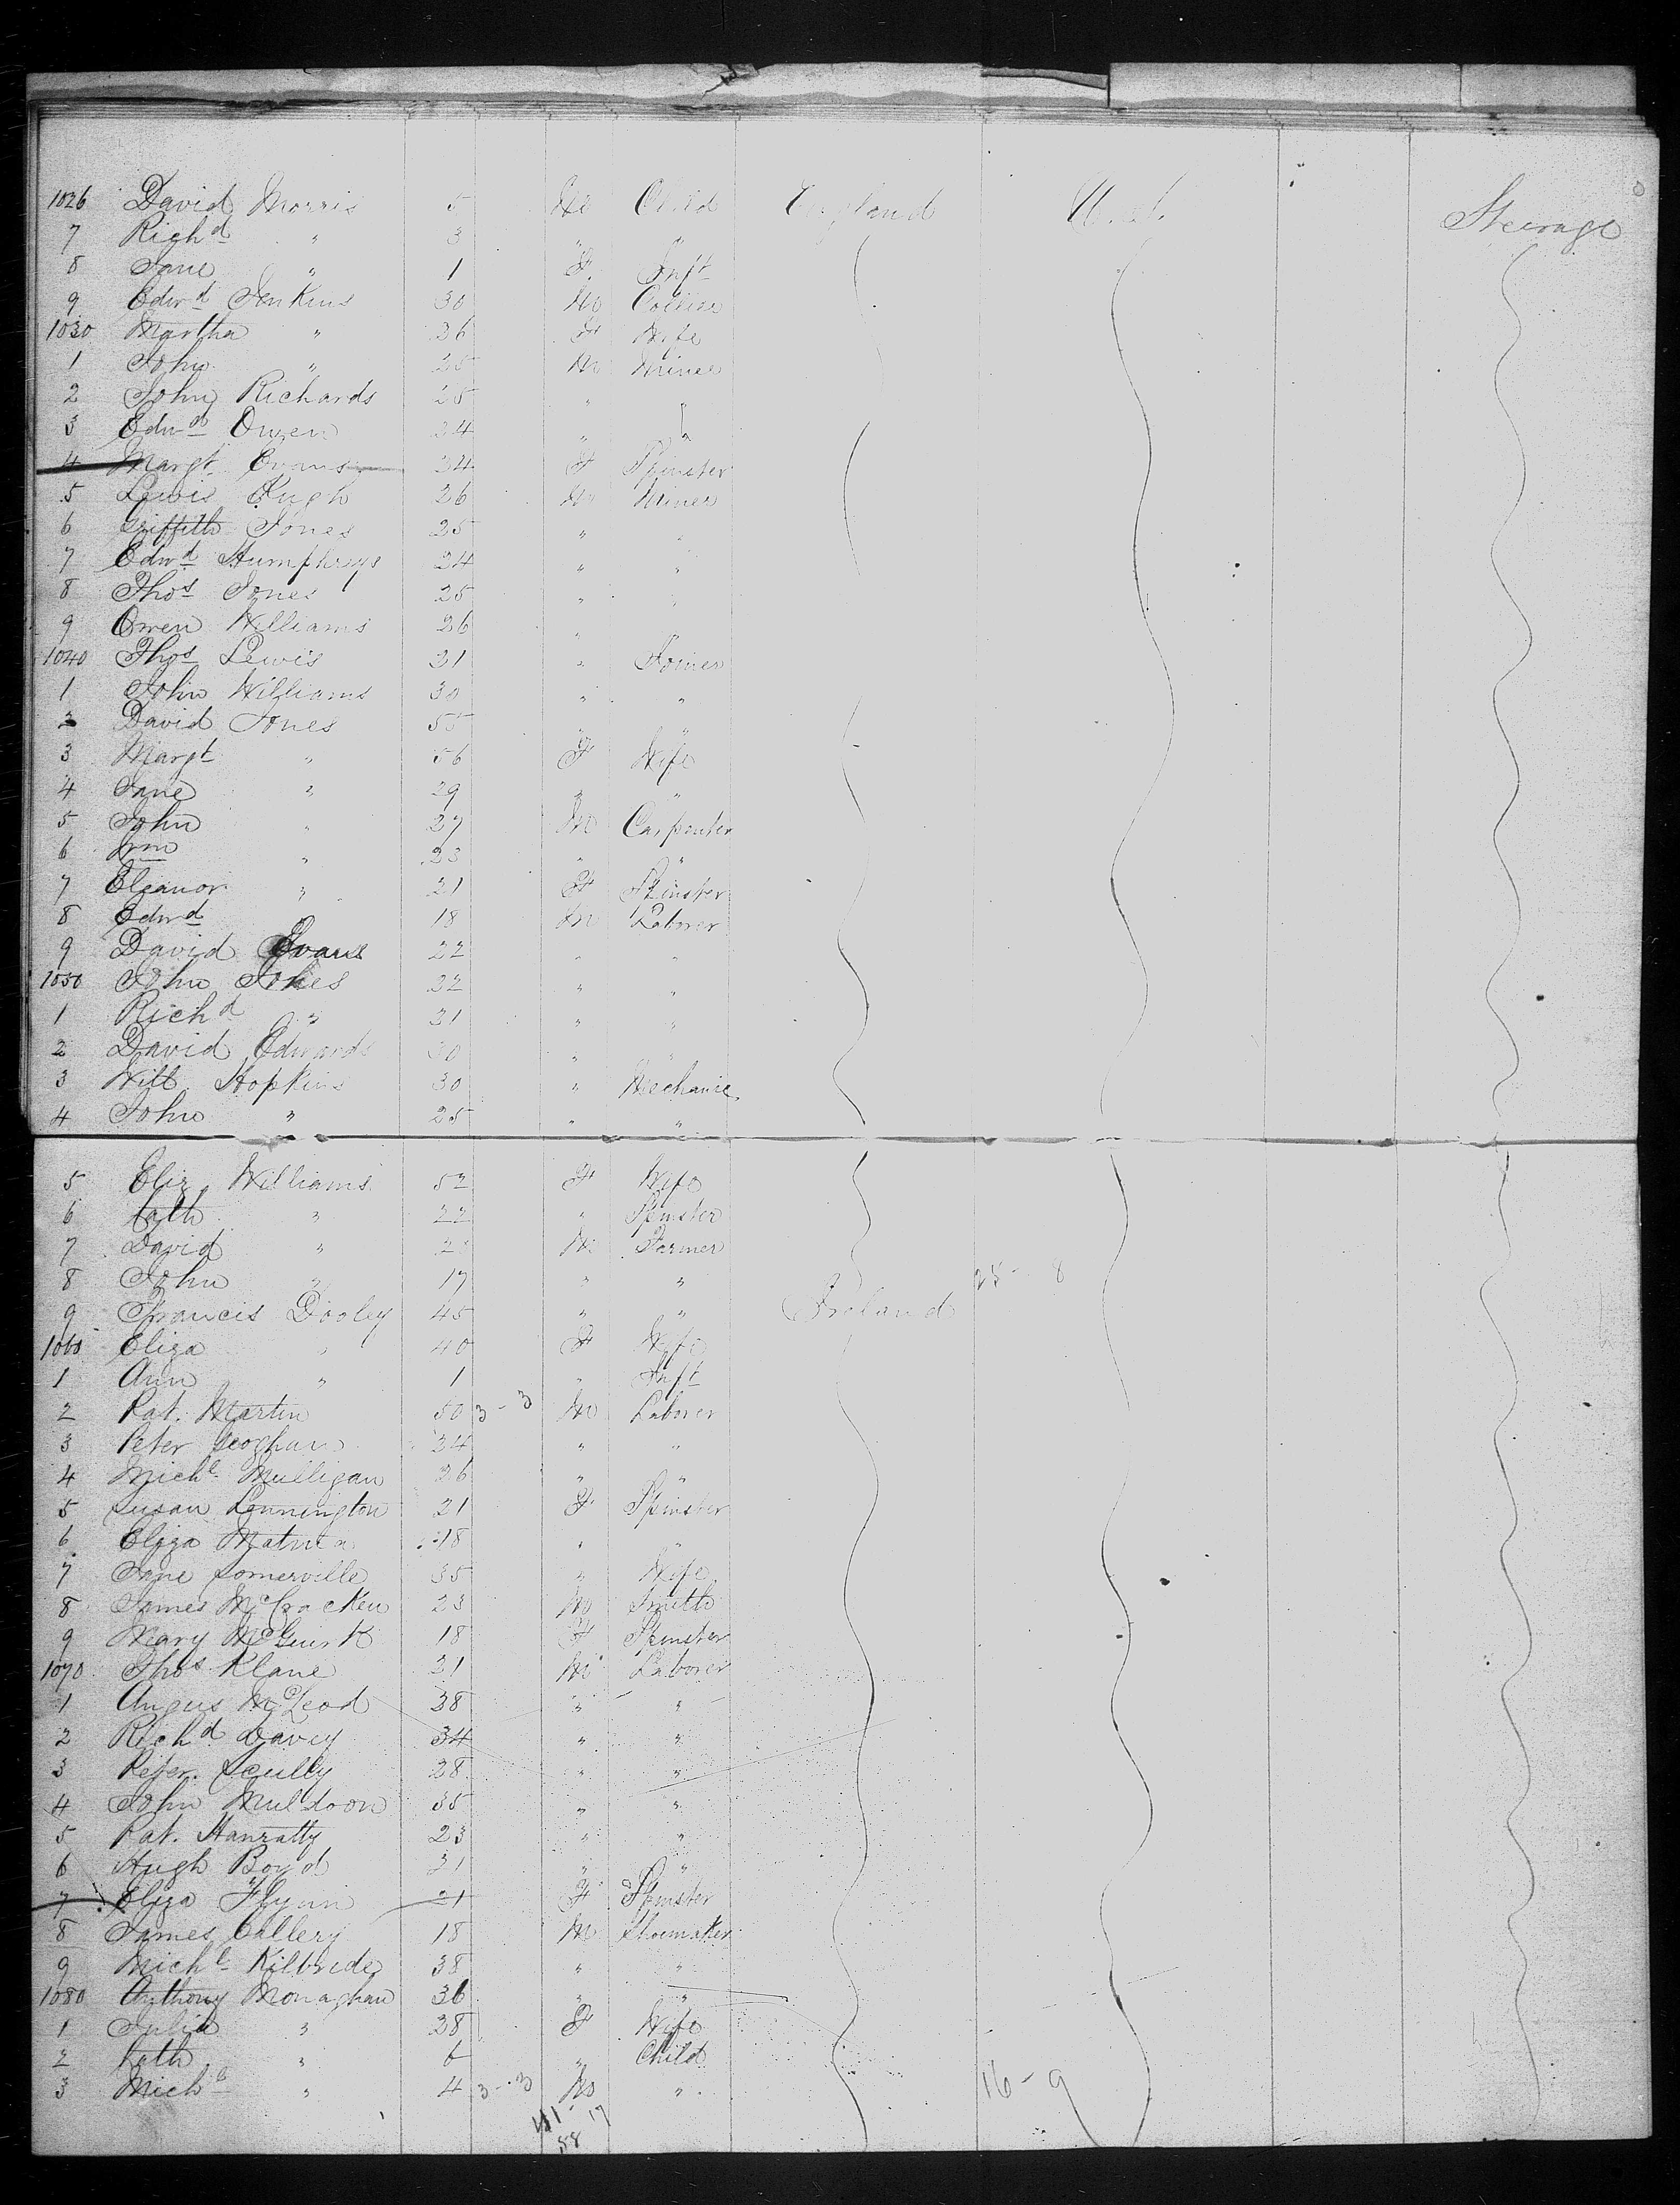 1026 David Morris 5 M Child England U.S. Steerage
7 Richd " 3 " "
8 Jane " 1 F Inft
9 Edwd Jenkins 30 M Collier
1030 Martha " 36 F Wife
1 John " 25 M Miner
2 John Richards 25 " "
3 Edwd Owen 24 " "
4 Margt Evans 34 F Spinster
5 Lewis Pugh 26 M Miner
6 Griffith Jones 25 " "
7 Edwd Humphreys 24 " "
8 Thos Jones 25 " "
9 Owen Williams 26 "
1040 Thos Lewis 31 " Joiner
1 John Williams 30 " "
2 David Jones 55 " "
3 Margt " 56 F Wife
4 Jane " 29 " "
5 John " 27 M Carpenter
6 Wm " 23 " "
7 Eleanor " 21 F Spinster
8 Edwd 18 M Laborer
9 David Evans 22 " "
1050 John Jones 32 " "
1 Richd " 31 " "
2 David Edwards 30 " "
3 Will. Hopkins 30 " Mechanic
4 John " 25 " "
5 Eliz. Williams 52 F Wife
6 Cath " 22 " Spinster
7 David " M Farmer
8 John " 17 " " 25 - 8
9 Francis Dooley 45 " " Ireland
1060 Eliza " 40 F Wife
1 Ann " 1 " Inft
2 Pat. Martin 50 3 - 3 M Laborer
3 Peter Geoghan 34 " "
4 Michl Mulligan 26 " "
5 Susan Lennington 21 F Spinster
6 Eliza 18 " "
7 Jane Somerville 35 " Wife
8 James McCracken 23 M Smith
9 Mary McGuirk 18 F Spinster
1070 Thos Klane 31 M Laborer
1 Angus McLeod 38 " "
2 Richd Davey 34 " "
3 Peter Scully 28 " "
4 John Muldoon 35 " "
5 Pat. Hanratty 23 " "
6 Hugh Boyd 31 " "
7 Eliza Flynn 21 F Spinster
8 James Callery 18 M Shoemaker
9 Michl Kilbride 38 " "
1080 Anthony Monaghan 36 " "
1 Julia " 38 F Wife
2 Cath " 6 " Child
3 Michl " 4 3 - 3 M " 16 - 9
41 - 17
58